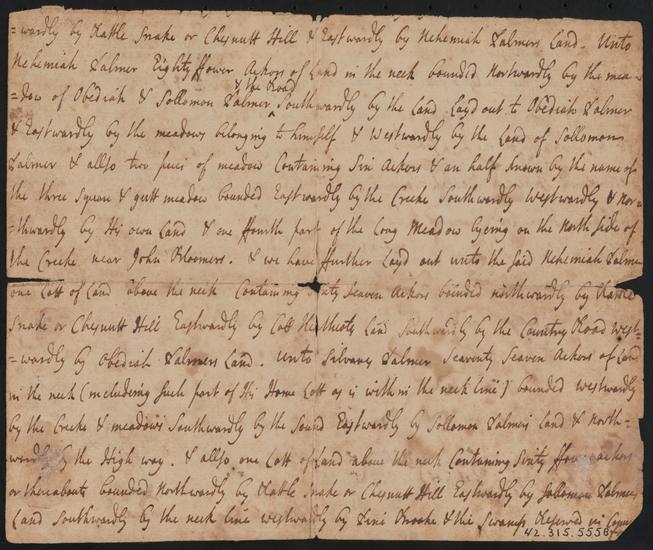 =wardly by Rattle Snake or Chesnutt Hill & Eastwardly by Nehemiah Palmers Land. Unto
Nehemiah Palmer Eighty ffower Ackors of Land in the neck bounded Northwardly by the mea-
& the Road
=dow of Obediah & Sollomon Palmer ^ Southwardly by the Land Layd out to Obediah Palmer
& Eastwardly by the meadows belonging to himself & Westwardly by the Land of Sollomon
Palmer & allso two peici of meadow Containing Six Ackors & an half known by the name of
the three Square & gutt meadow bounded Eastwardly by the Creeke Southwardly Westwardly & Nor=
=thwardly by His own Land & one ffourth part of the Long Meadow lyeing on the North side of
the Creeke near John Bloomers. & we have ffurther Layd out unto the said Nehemiah Palmer
one Lott of Land above the neck Containing Seaven Ackors bounded northwardly by Rattle
Snake or Chesnutt Hill Eastwardly by Land Southwardly by the Country Road West=
=wardly by Obediah Palmers Land. Unto Silvanus Palmer Seaventy Seaven Ackors of Land
in the neck (including Such part of His Home Lott as is with in the neck line) bounded Westwardly
by the Creeke & meadows Southwardly by the Sound Eastwardly by Sollomon Palmers Land & North=
wardly by the High way. & allso one Lott of Land above the neck Containing Sixty ffower ackors
or thereabouts bounded Northwardly by Rattle Snake or Chesnutt Hill Eastwardly by Sollomon Palmers
Land Southwardly by the neck line westwardly by Pine Brooke & the Swamp Reserved in
42.315.555B